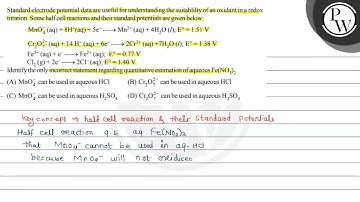 Standard electrode potential data are useful for understanding the suitability of an oxidant in a redox
titration. Some half cell reactions and their standard potentials are given below:
MnO₄⁻ (aq) + 8H⁺(aq) + 5e⁻ ⟶ Mn²⁺ (aq) + 4H₂O (l); E° = 1.51 V
Cr₂O₇²⁻ (aq) + 14 H⁺ (aq) + 6e⁻ ⟶ 2Cr³⁺ (aq) +7H₂O (l); E° = 1.38 V
Fe³⁺ (aq) + e⁻ ⟶ Fe²⁺ (aq); E° = 0.77 V
Cl₂ (g) + 2e⁻ ⟶ 2Cl⁻ (aq); E° = 1.40 V
Identify the only incorrect statement regarding quantitative estimation of aqueous Fe(NO₃)₂
(A) MnO₄⁻ can be used in aqueous HCl (B) Cr₂O₇²⁻ can be used in aqueous HCl
(C) MnO₄⁻ can be used in aqueous H₂SO₄ (D) Cr₂O₇²⁻ can be used in aqueous H₂SO₄
Key concept → half cell reaction & their standard potentials
Half cell reaction q. E aq Fe(NO₃)₂
that MnO₄⁻ cannot be used in aq. HCl
because MnO₄⁻ will not oxidises